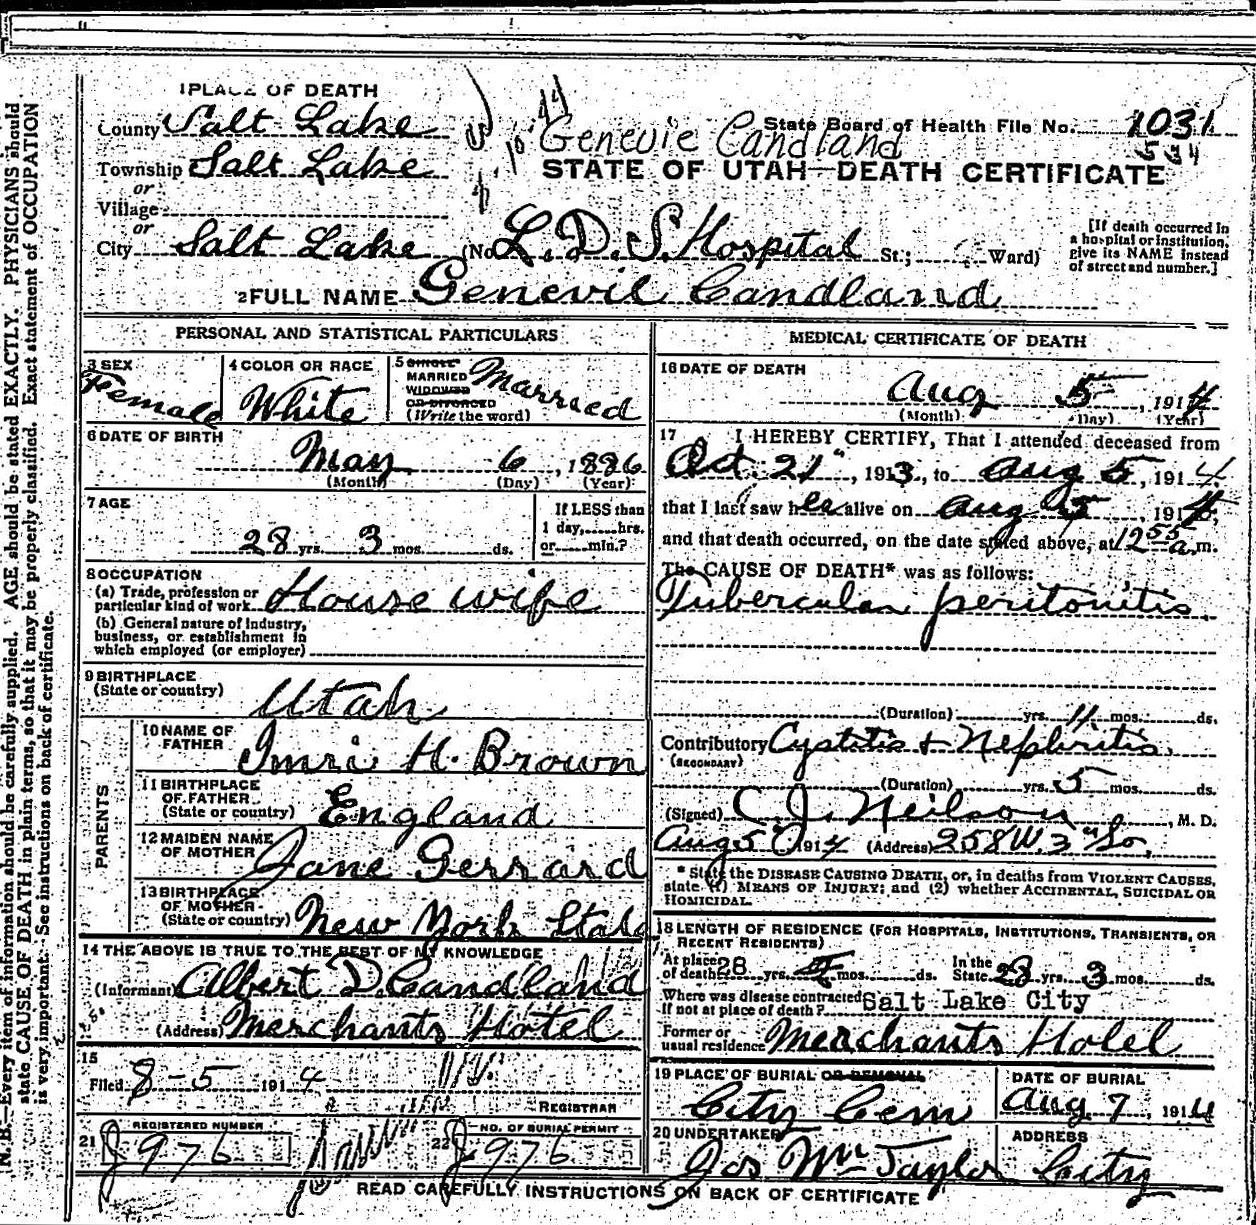 1 PLACE OF DEATH
County Salt Lake
Township Salt Lake
or
Village
or
City Salt Lake (No. L. D. S. Hospital St.; Ward)
[If death occurred in a hospital or institution, give its NAME instead of street and number.]
Genevie Candland
State Board of Health File No. 1031
534
STATE OF UTAH—DEATH CERTIFICATE
2 FULL NAME Genevil Candland
PERSONAL AND STATISTICAL PARTICULARS
3 SEX Female
4 COLOR OR RACE White
5 SINGLE MARRIED WIDOWED OR DIVORCED (Write the word) Married
6 DATE OF BIRTH
May 6, 1886
(Month) (Day) (Year)
7 AGE
28 yrs. 3 mos. ds.
If LESS than 1 day, hrs. or min.?
8 OCCUPATION
(a) Trade, profession or particular kind of work House wife
(b) General nature of industry, business, or establishment in which employed (or employer)
9 BIRTHPLACE
(State or country) Utah
PARENTS
10 NAME OF FATHER Imri H. Brown
11 BIRTHPLACE OF FATHER (State or country) England
12 MAIDEN NAME OF MOTHER Jane Gerrard
13 BIRTHPLACE OF MOTHER (State or country) New York State
14 THE ABOVE IS TRUE TO THE BEST OF MY KNOWLEDGE
(Informant) Albert D. Candland
(Address) Merchants Hotel
15
Filed 8-5 1914
REGISTRAR
21 REGISTERED NUMBER J976
22 NO. OF BURIAL PERMIT J976
MEDICAL CERTIFICATE OF DEATH
16 DATE OF DEATH
Aug 5, 1914
(Month) (Day) (Year)
17 I HEREBY CERTIFY, That I attended deceased from
Oct 21", 1913, to Aug 5, 1914
that I last saw her alive on Aug 5 1914,
and that death occurred, on the date stated above, at 12 55 a. m.
The CAUSE OF DEATH* was as follows:
Tubercular peritonitis.
(Duration) yrs. 11 mos. ds.
Contributory Cystitis + Nephritis
(SECONDARY)
(Duration) yrs. 5 mos. ds.
(Signed) C. J. Neilson, M. D.
Aug 5 1914 (Address) 258 W. 3" So.
* State the DISEASE CAUSING DEATH, or, in deaths from VIOLENT CAUSES, state (1) MEANS OF INJURY; and (2) whether ACCIDENTAL, SUICIDAL OR HOMICIDAL.
18 LENGTH OF RESIDENCE (FOR HOSPITALS, INSTITUTIONS, TRANSIENTS, OR RECENT RESIDENTS)
At place of death 28 yrs. mos. ds. In the State 28 yrs. 3 mos. ds.
Where was disease contracted If not at place of death? Salt Lake City
Former or usual residence Merchants Hotel
19 PLACE OF BURIAL OR REMOVAL City Cem
DATE OF BURIAL Aug 7, 1914
20 UNDERTAKER Jos Wm Taylor
ADDRESS City
READ CAREFULLY INSTRUCTIONS ON BACK OF CERTIFICATE
N. B.—Every item of information should be carefully supplied. AGE should be stated EXACTLY. PHYSICIANS should
state CAUSE OF DEATH in plain terms, so that it may be properly classified. Exact statement of OCCUPATION
is very important. See instructions on back of certificate.